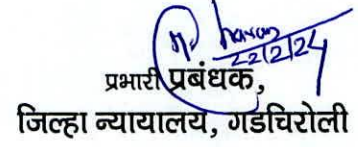 22/2/24
प्रभारी प्रबंधक,
जिल्हा न्यायालय, गडचिरोली